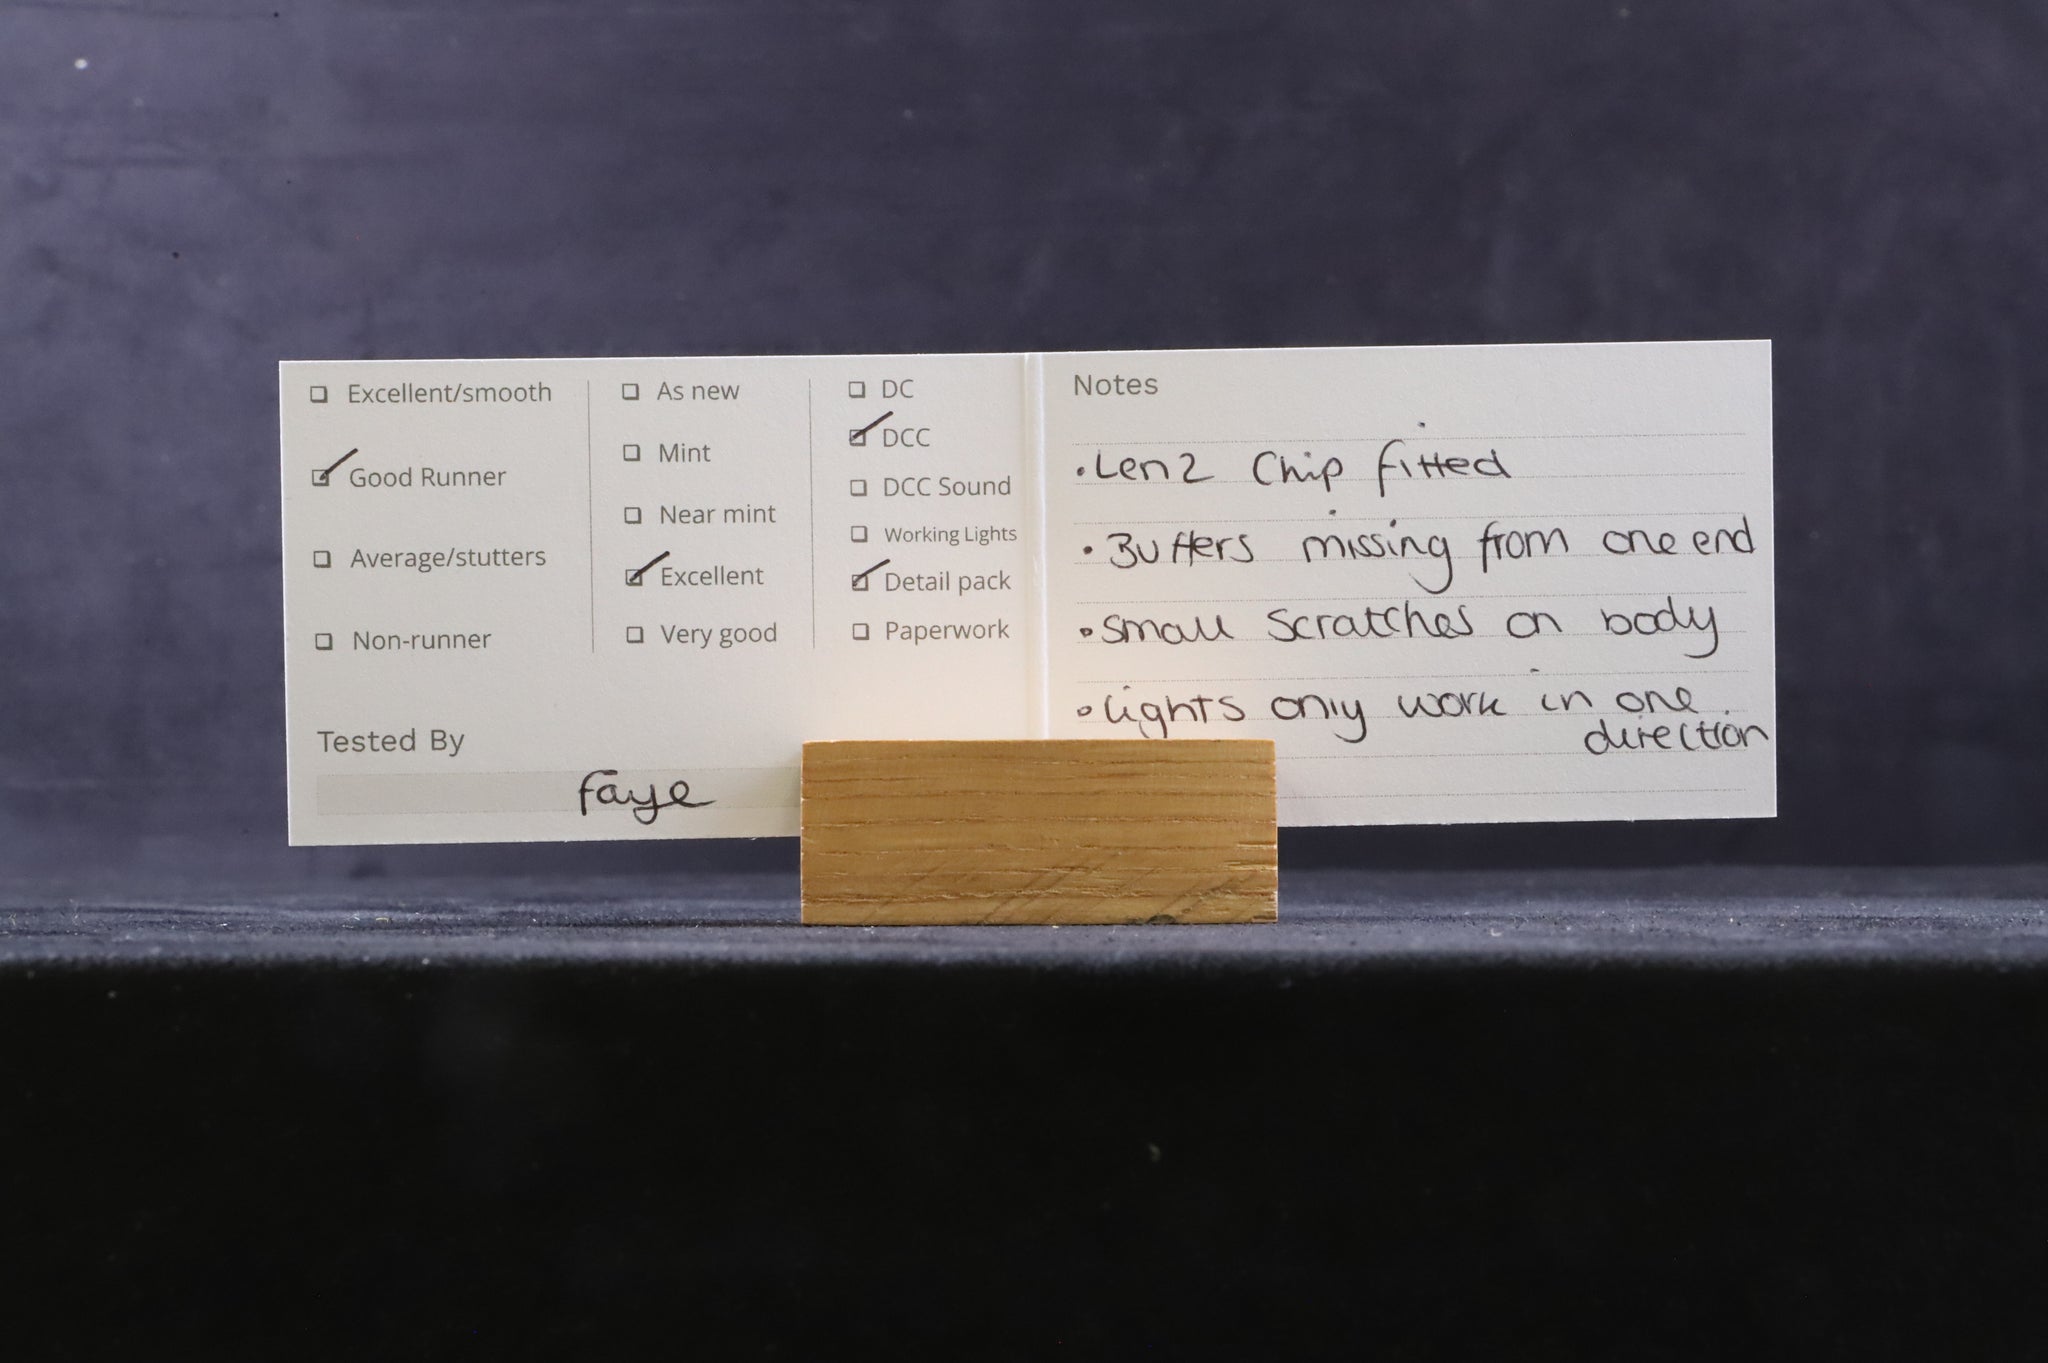 Excellent/smooth
Good Runner
Average/stutters
Non-runner
As new
Mint
Near mint
Excellent
Very good
DC
DCC
DCC Sound
Working Lights
Detail pack
Paperwork
Tested By
Faye
Notes
• Lenz Chip fitted
• Buffers missing from one end
• Small Scratches on body
• Lights only work in one
direction